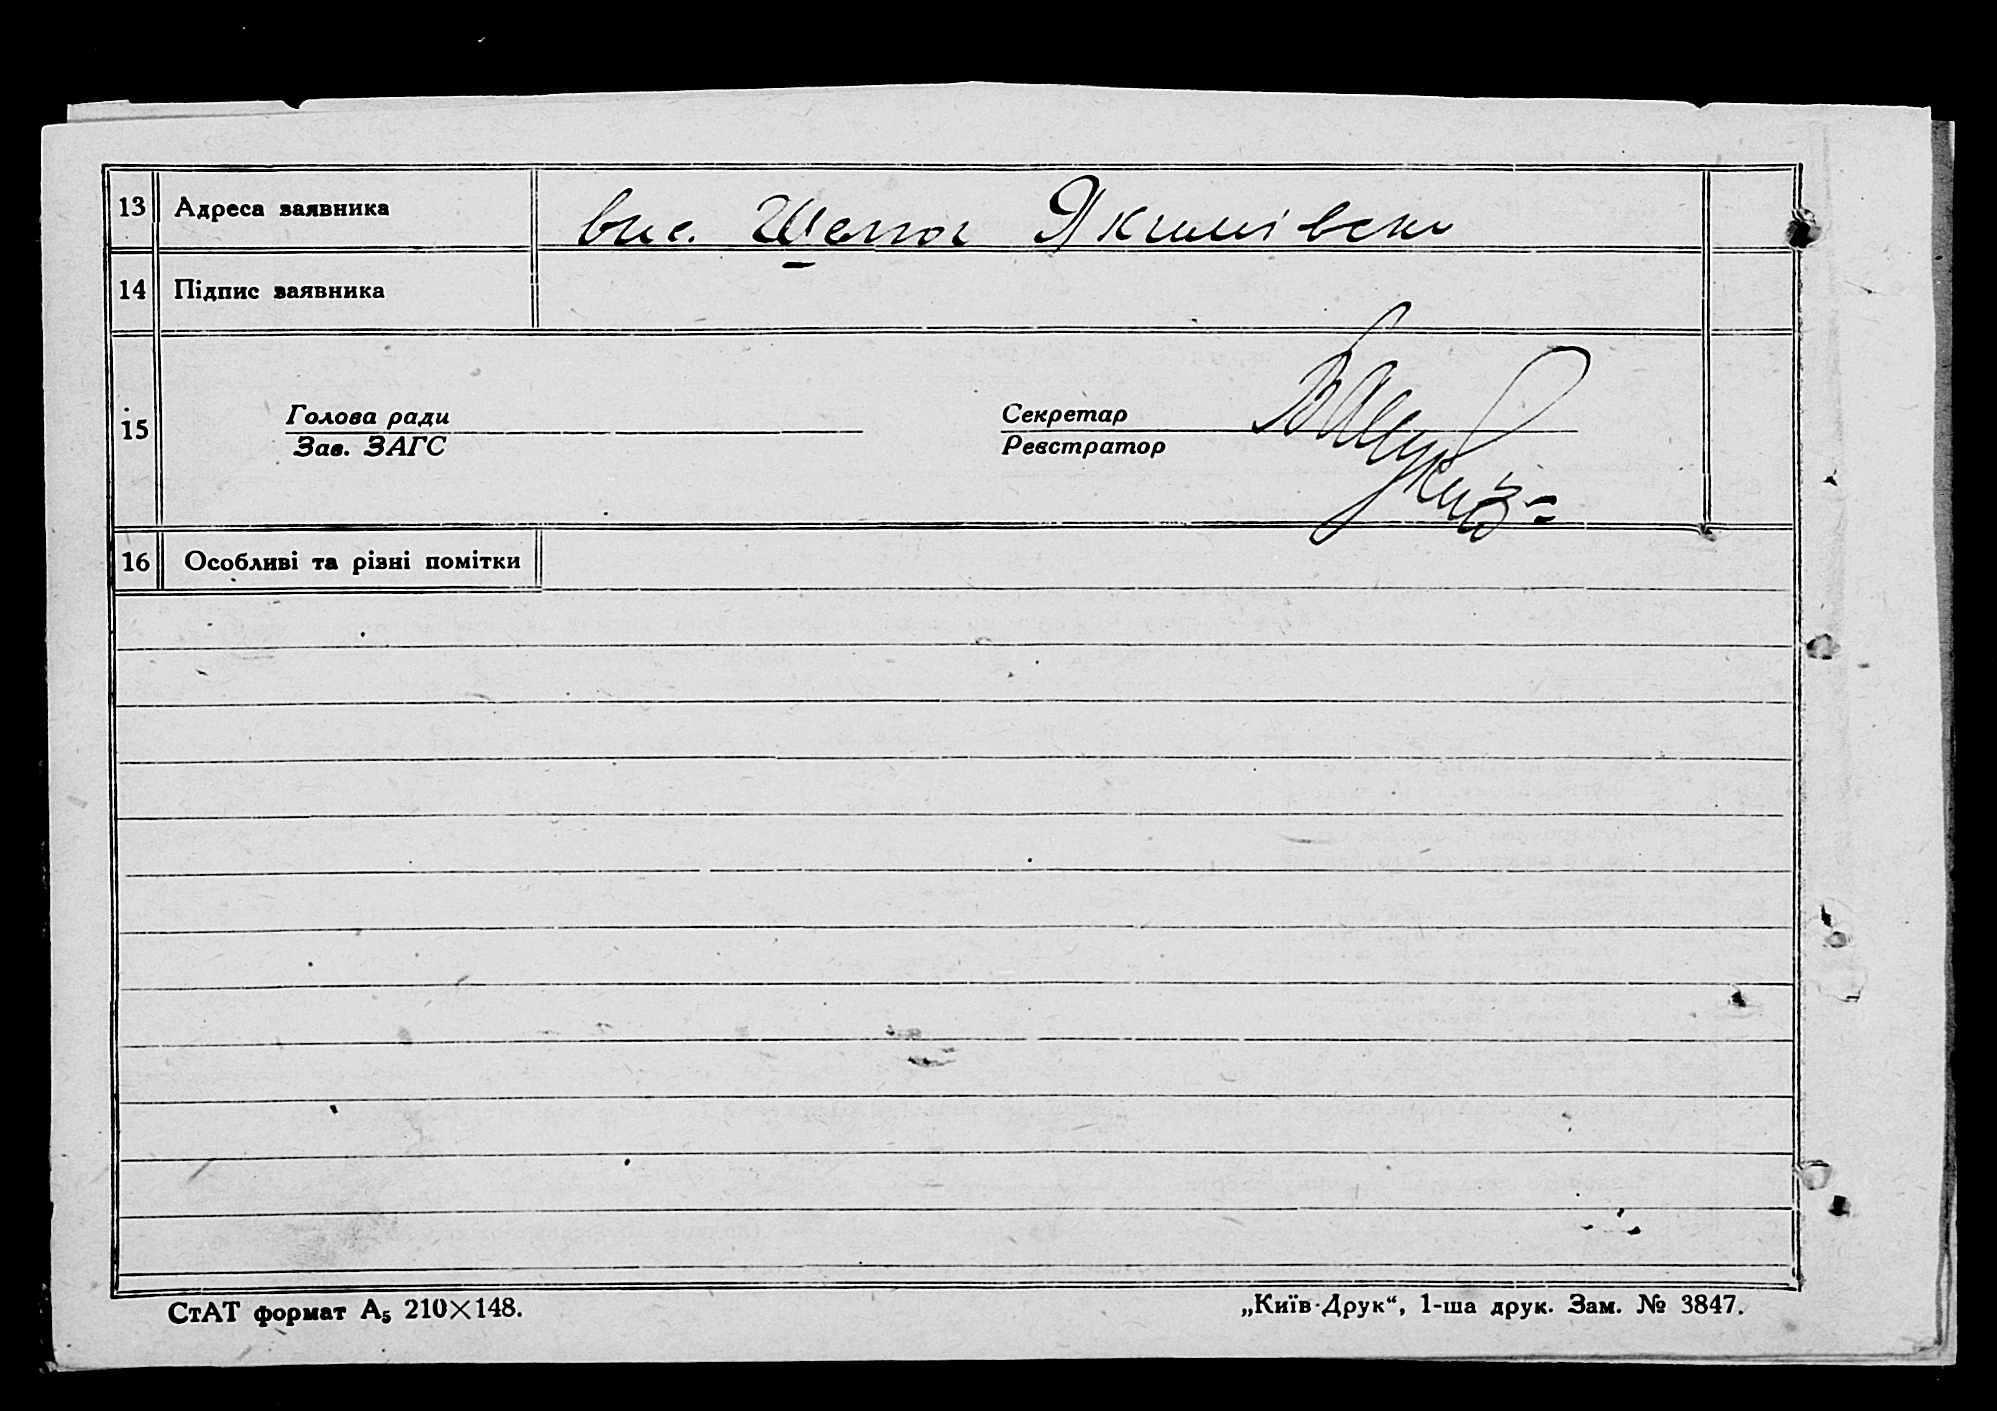 13 Адреса заявника вис. Якимівська
14 Підпис заявника
15
Голова ради
Зав. ЗАГС
Секретар
Реєстратор
16 Особливі та різні помітки
СтАТ формат А₅ 210×148.
„Київ-Друк“, 1-ша друк. Зам. № 3847.